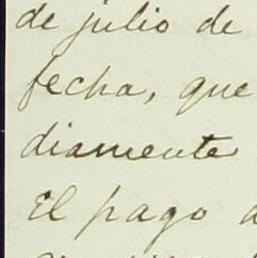 de julio de
fecha, que
diamente
El pago